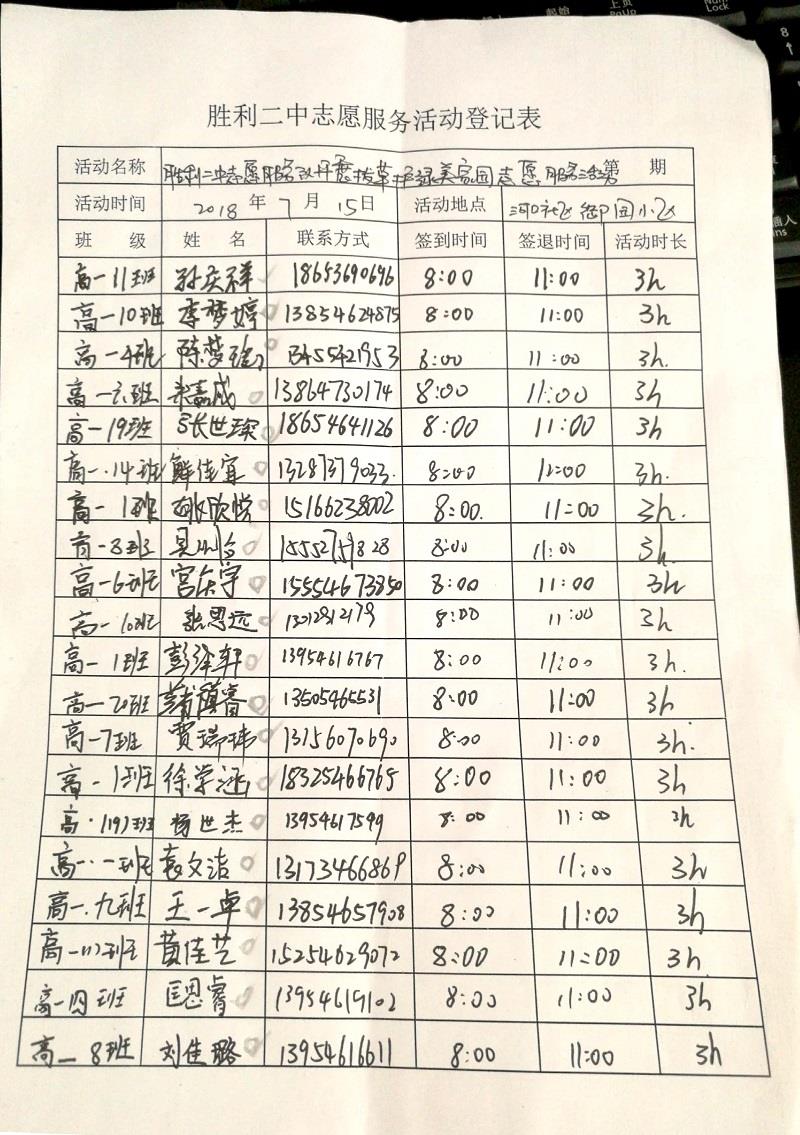 胜利二中志愿服务活动登记表
活动名称 胜利二中志愿服务 美家园志愿服务活动 第 期
活动时间 2018 年 7 月 15 日 活动地点 河口社区 御园小区
班 级 姓 名 联系方式 签到时间 签退时间 活动时长
高一11班 孙庆祥 18653690696 8:00 11:00 3h
高一10班 李梦婷 13854624875 8:00 11:00 3h
高一4班 陈梦瑶 13455421953 8:00 11:00 3h.
高一六班 米嘉成 13864730174 8:00 11:00 3h
高一19班 张世琛 18654641126 8:00 11:00 3h
高一.14班 鲜佳宜 13287379033. 8:00 11:00 3h.
高一 1班 欣悦 15166238002 8:00. 11:00 3h.
高一8班 吴 15552759828 8:00 11:00 3h
高一6班 宫庆宇 15554673850 8:00 11:00 3h
高一10班 张思远 8:00 11:00 3h
高一 1班 彭泽轩 13954616767 8:00 11:00 3h.
高一20班 睿 13505465531 8:00 11:00 3h
高一7班 贾瑞玮 13156070690 8:00 11:00 3h.
高一1班 徐学涵 18325466765 8:00 11:00 3h
高一(19)班 杨世杰 13954617599 8:00 11:00 3h
高一.一班 袁文洁 13173466869 8:00 11:00 3h
高一.九班 王一卓 13854657908 8:00 11:00 3h
高一 班 黄佳艺 15254629072 8:00 11:00 3h
高一四班 睿 13954619102 8:00 11:00 3h
高一 8班 刘佳璐 13954616611 8:00 11:00 3h